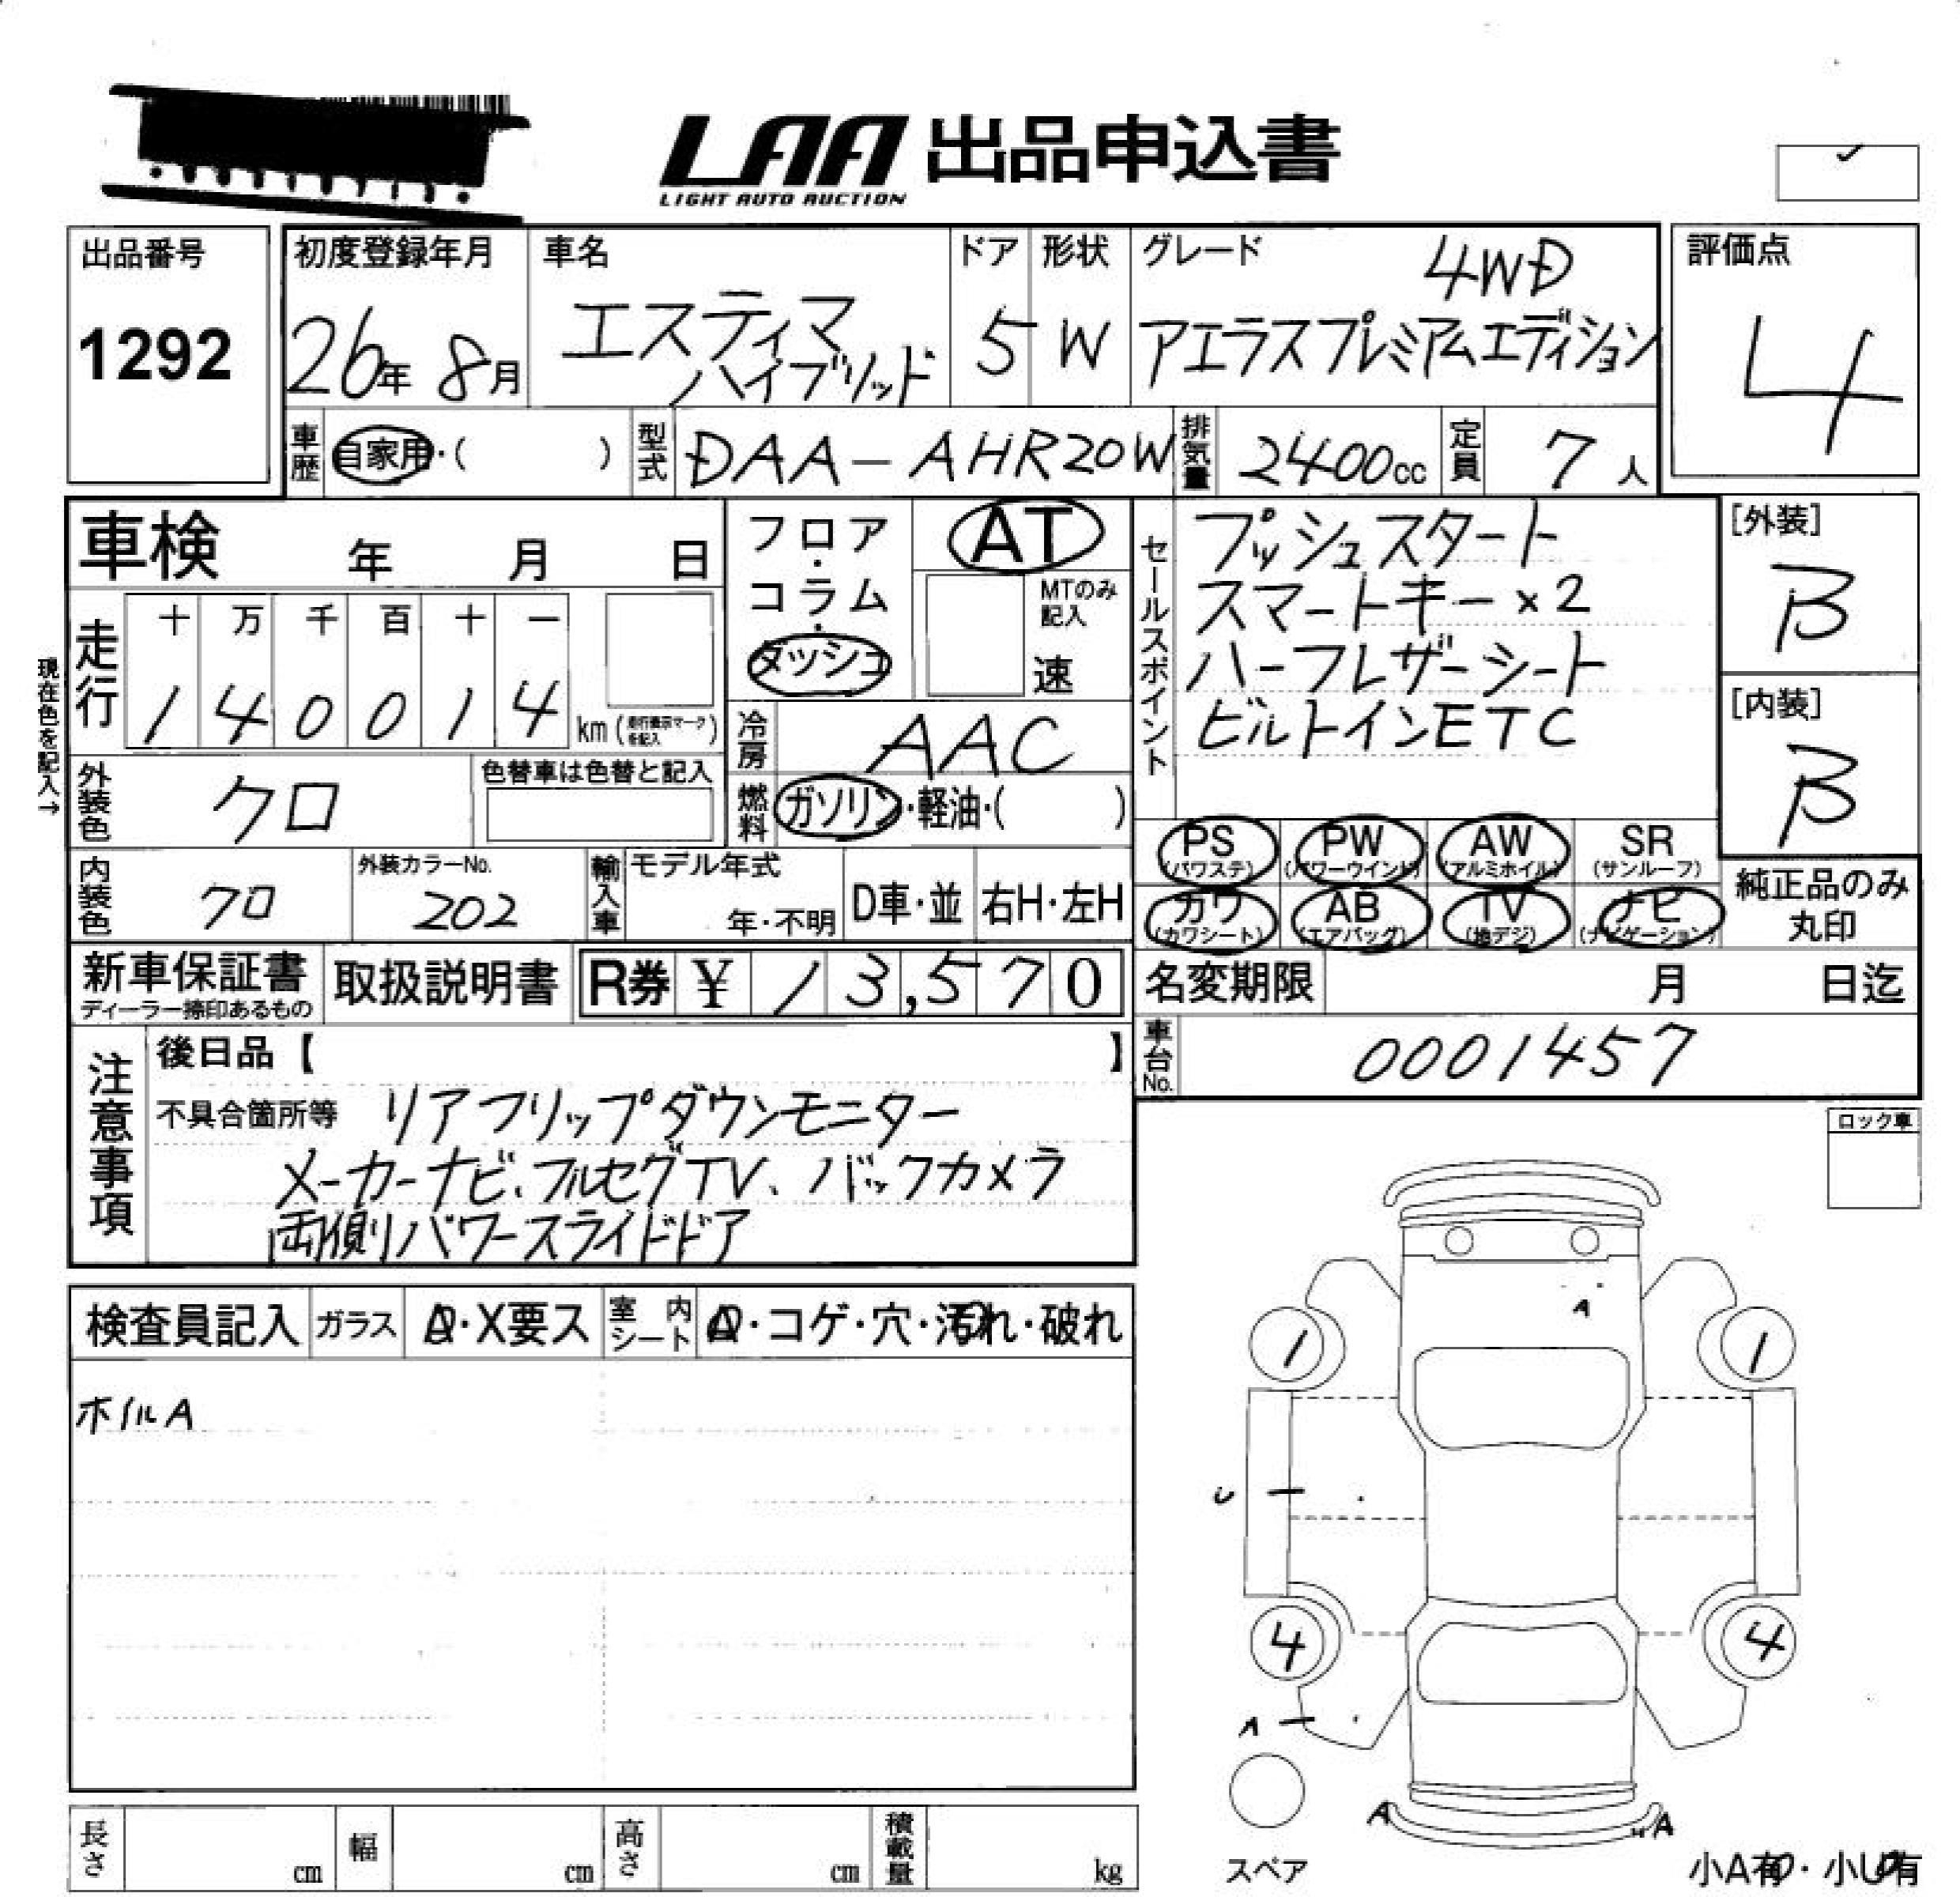 LAA 出品申込書
LIGHT AUTO AUCTION
出品番号
1292
初度登録年月
26年 8月
車名
エスティマ
ハイブリッド
ドア
5
形状
W
グレード
4WD
アエラスプレミアムエディション
評価点
4
車歴 自家用・( )
型式 DAA-AHR20W
排気量 2400cc
定員 7人
車検 年 月 日
フロア・コラム・ダッシュ
AT
MTのみ記入
速
セールスポイント
プッシュスタート
スマートキー×2
ハーフレザーシート
ビルトインETC
[外装]
B
[内装]
B
現在色を記入→
走行
十 万 千 百 十 一
1 4 0 0 1 4 km (走行表示マークを記入)
冷房 AAC
外装色 クロ
色替車は色替と記入
燃料 ガソリン・軽油・( )
PS (パワステ)
PW (パワーウインド)
AW (アルミホイル)
SR (サンルーフ)
カワ (カワシート)
AB (エアバッグ)
TV (地デジ)
ナビ (ナビゲーション)
純正品のみ
丸印
内装色 クロ
外装カラーNo.
202
輸入車
モデル年式
年・不明
D車・並
右H・左H
新車保証書
ディーラー捺印あるもの
取扱説明書
R券 ¥ 13,570
名変期限 月 日迄
車台No. 0001457
注意事項
後日品【 】
不具合箇所等 リアフリップダウンモニター
メーカーナビ、フルセグTV、バックカメラ
両側パワースライドドア
ロック車
検査員記入
ガラス A・X要ス
室内シート A・コゲ・穴・汚れ・破れ
ホイルA
A
1 1
U
4 4
A
A A
スペア
小A有・小U有
長さ cm
幅 cm
高さ cm
積載量 kg